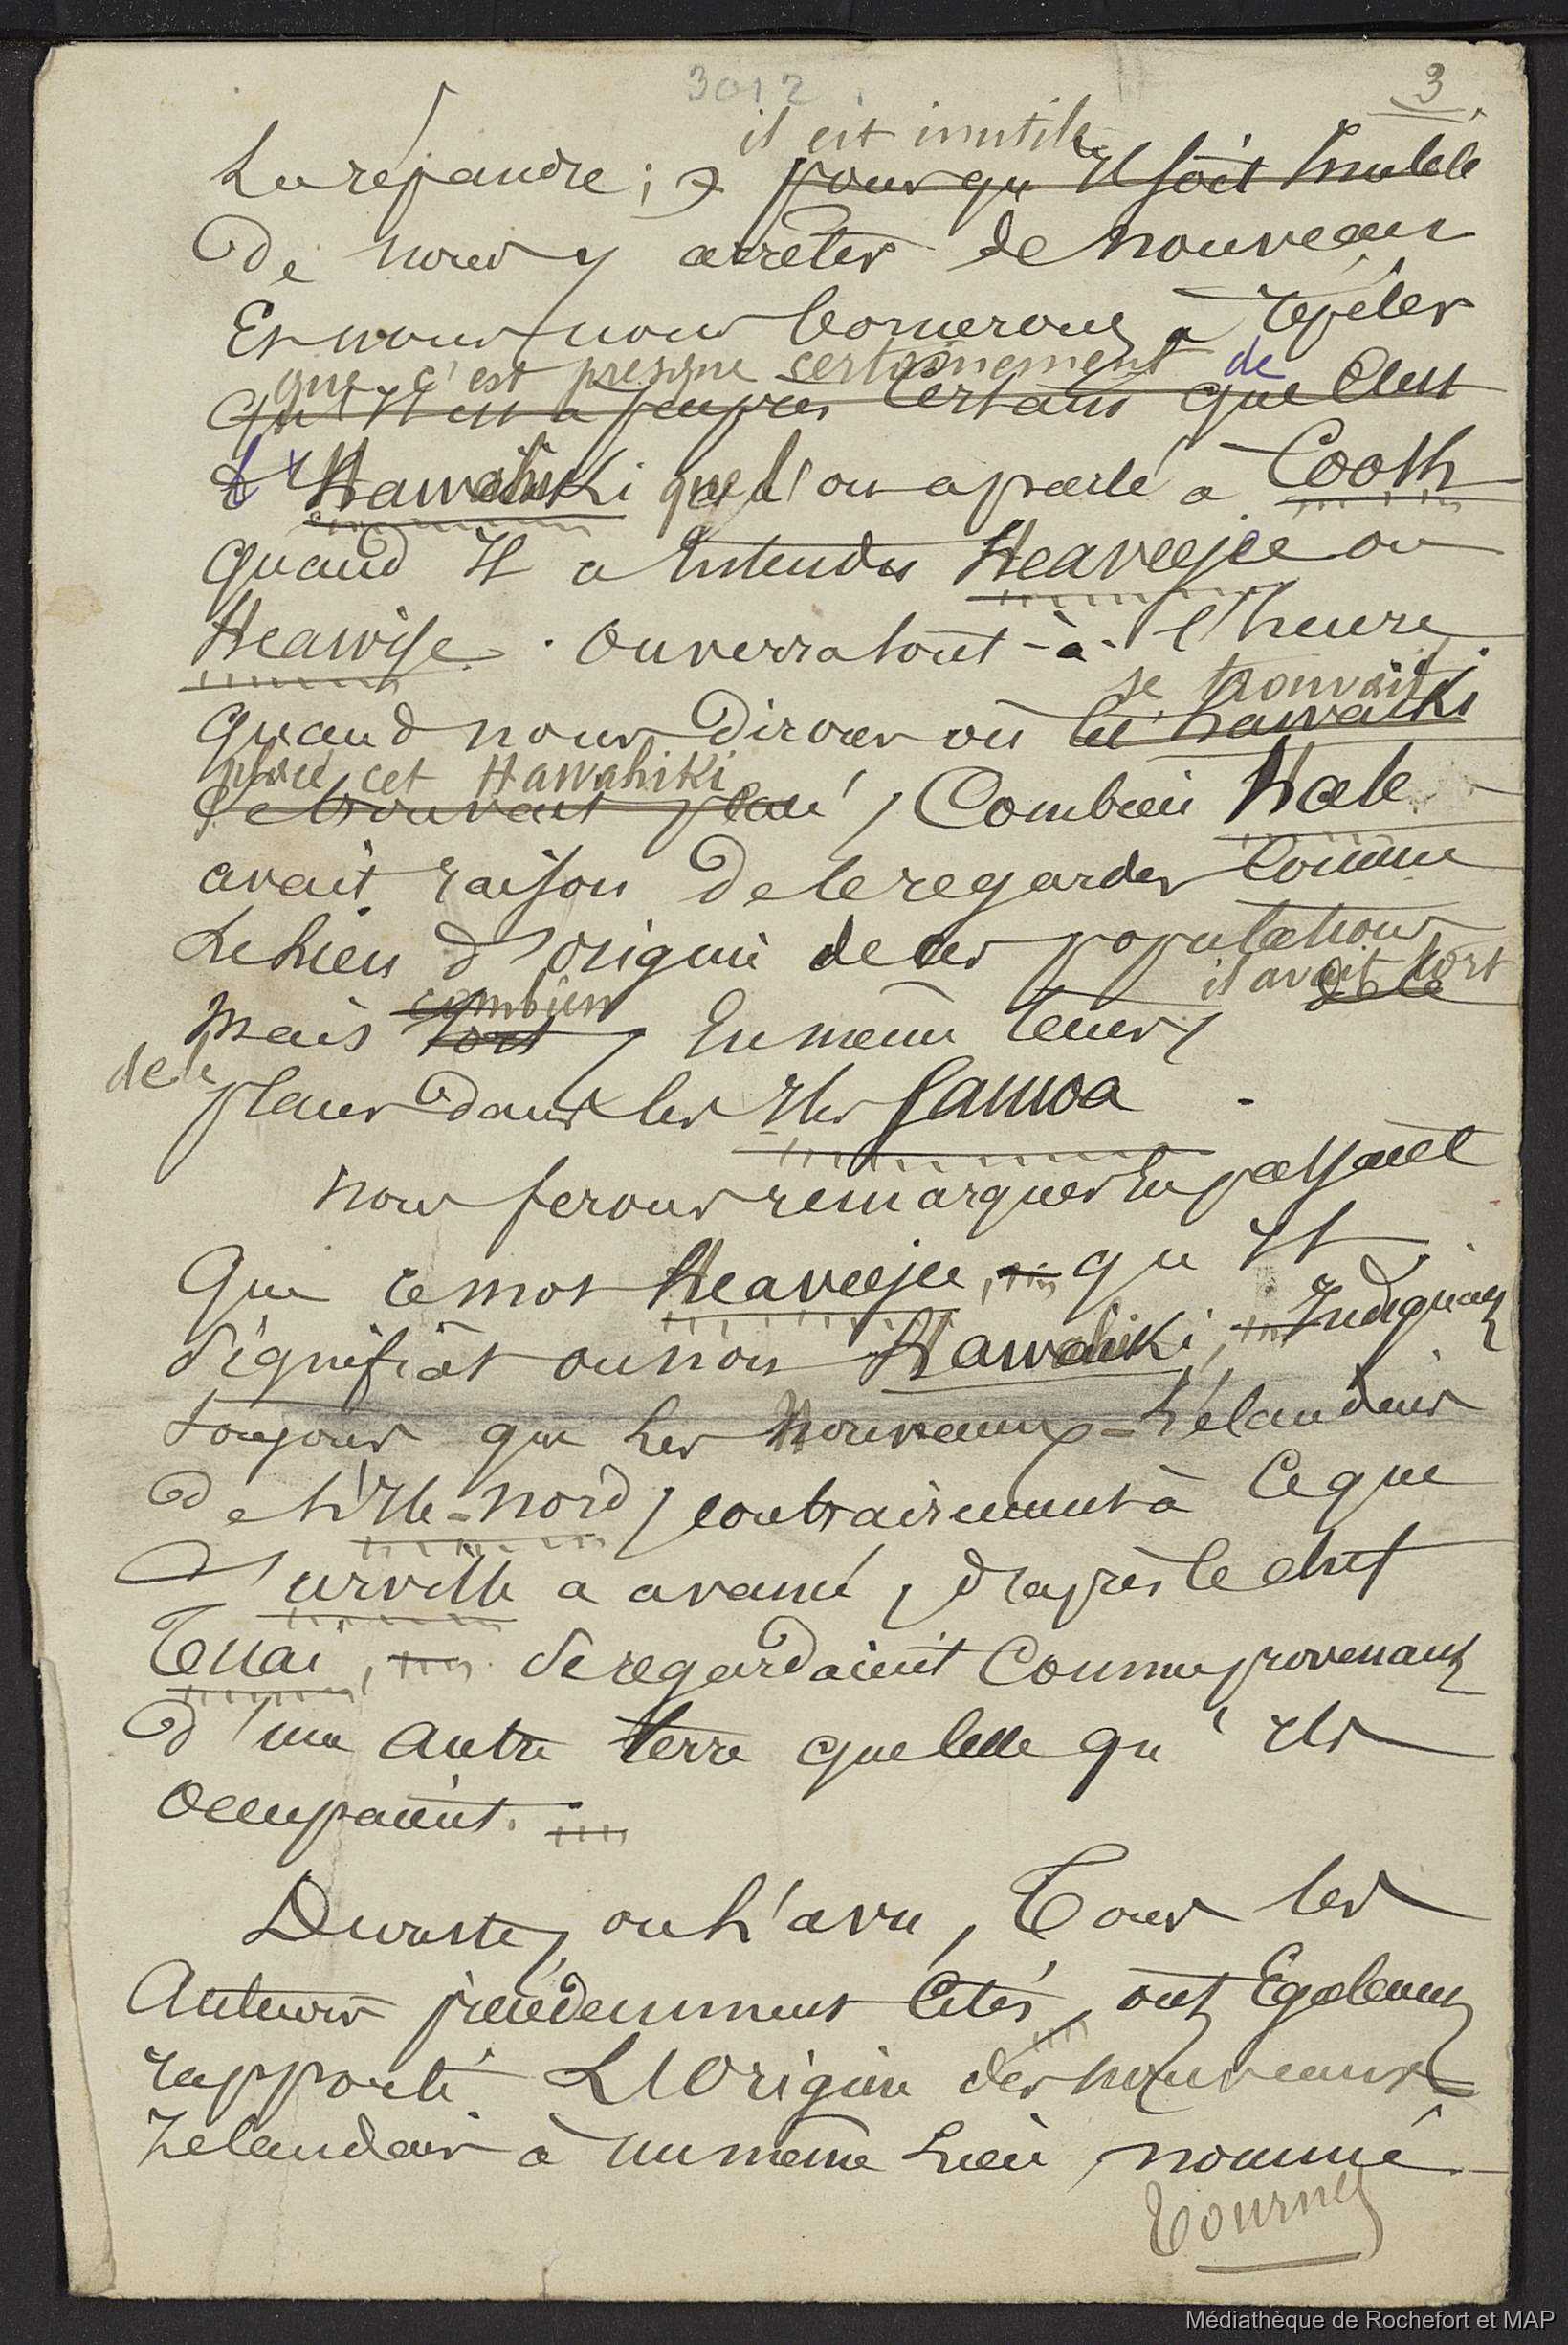 3012
3
il est inutile
La répandre ; pour qu'Il soit Inutile
De nous y arrêter de nouveau
Et nous nous bornerons à répéter
que c'est presque certainement de
qu'Il est à peu près Certain que C'est
d'Hawahiki que l'on a parlé à Cooth
quand Il a Entendu Heaveeje ou
Heawise. On verra tout-à-l'heure
se trouvait
quand nous Dirons où le Hawaiki
placé cet Hawahiki
se trouvait placé, Combien Hale
avait raison De le regarder Comme
Le Lieu D'origine de ces populations
il avait tort
Mais combien tort, En même tems de le
de le
placer Dans les Iles Samoa.
Nous ferons remarquer En passant
Que ce mot Heaveeje, qu'Il
Signifiât ou non Hawahiki, Indiquait
Toujours que Les Nouveaux-Zélandais
De L'Ile-Nord, contrairement à Ce que
D'urville a avancé, D'après le chef
Touai, Se regardaient Comme provenant
D'une Autre terre que celle qu'Ils
Occupaient.
Du reste, on L'a vu, Tous les
Auteurs précédemment Cités, ont Egalement
rapporté L'Origine des Nouveaux
Zelandais à un même Lieu, nommé
Tournez
Médiathèque de Rochefort et MAP